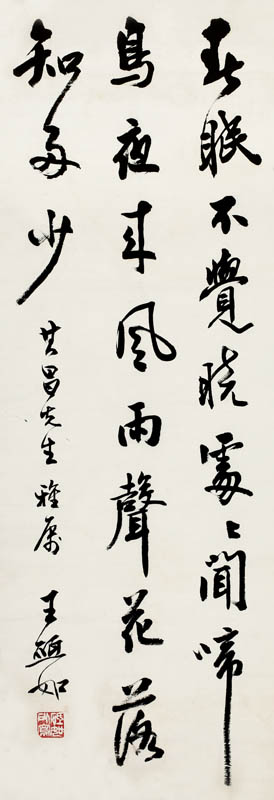 春眠不覺晓處々聞啼
鳥夜来風雨聲花落
知多少
其昌先生雅属
王